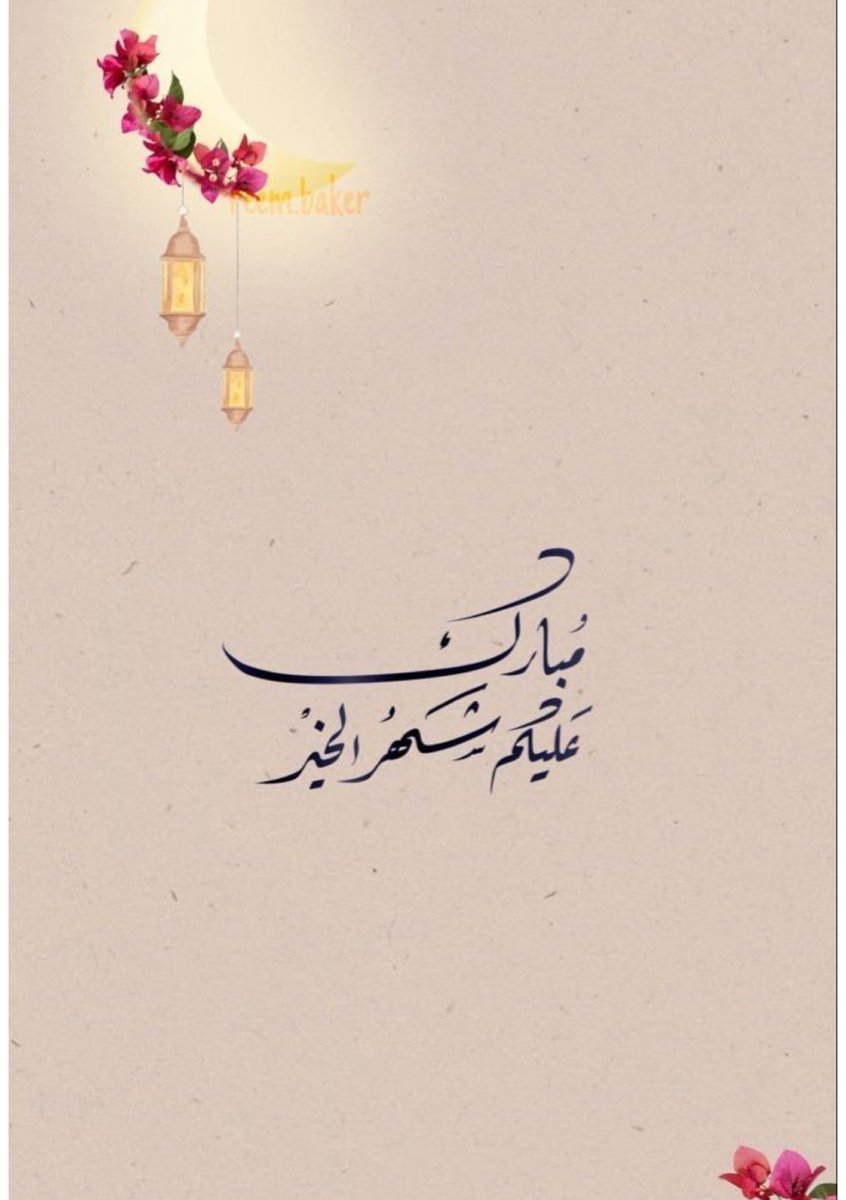 reem.baker
مُبارك
عَليكم شهرُ الخيْر